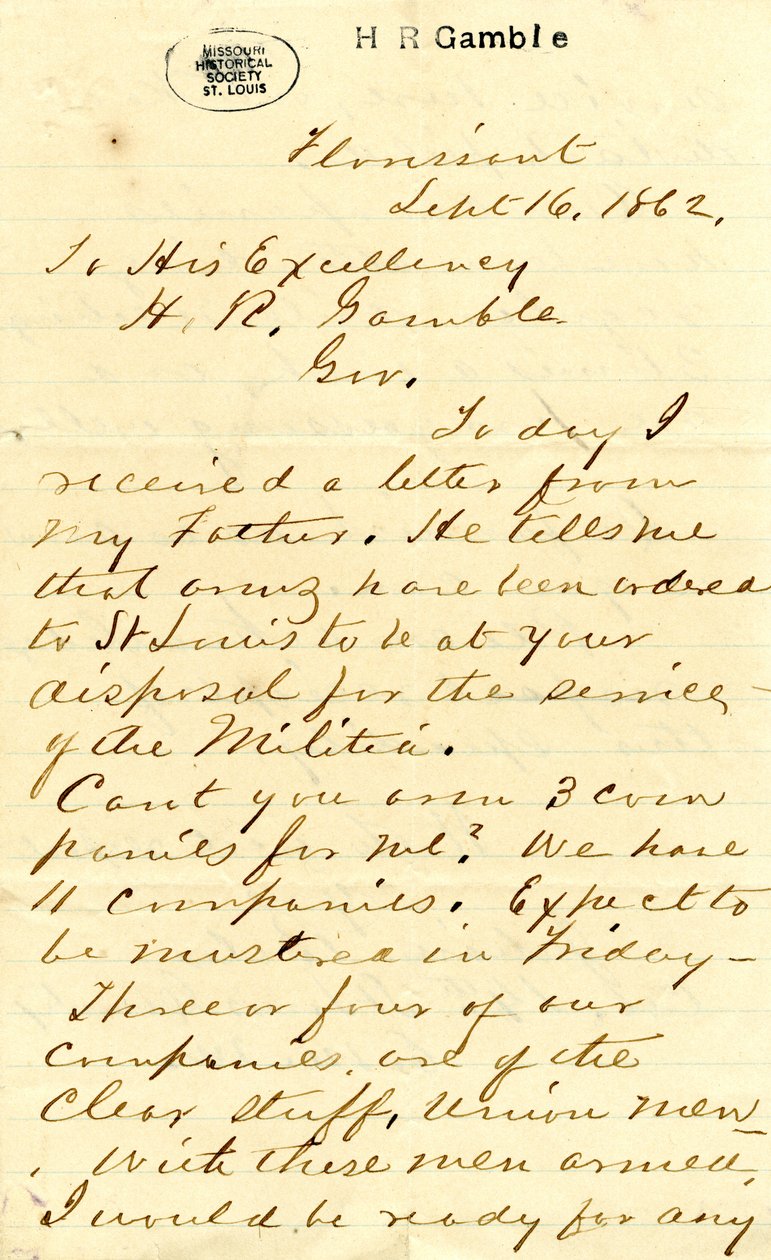 H R Gamble
MISSOURI
HISTORICAL
SOCIETY
ST. LOUIS
Florissant
Sept 16, 1862.
To His Excellency
H. R. Gamble
Gov.
To day I
received a letter from
my Father. He tells me
that arms have been ordered
to St Louis to be at your
disposal for the service
of the Militia.
Cant you arm 3 com
panies for me? We have
11 companies. Expect to
be mustered in Friday—
Three or four of our
companies, are of the
clear stuff, Union men
. With these men armed,
I would be ready for any